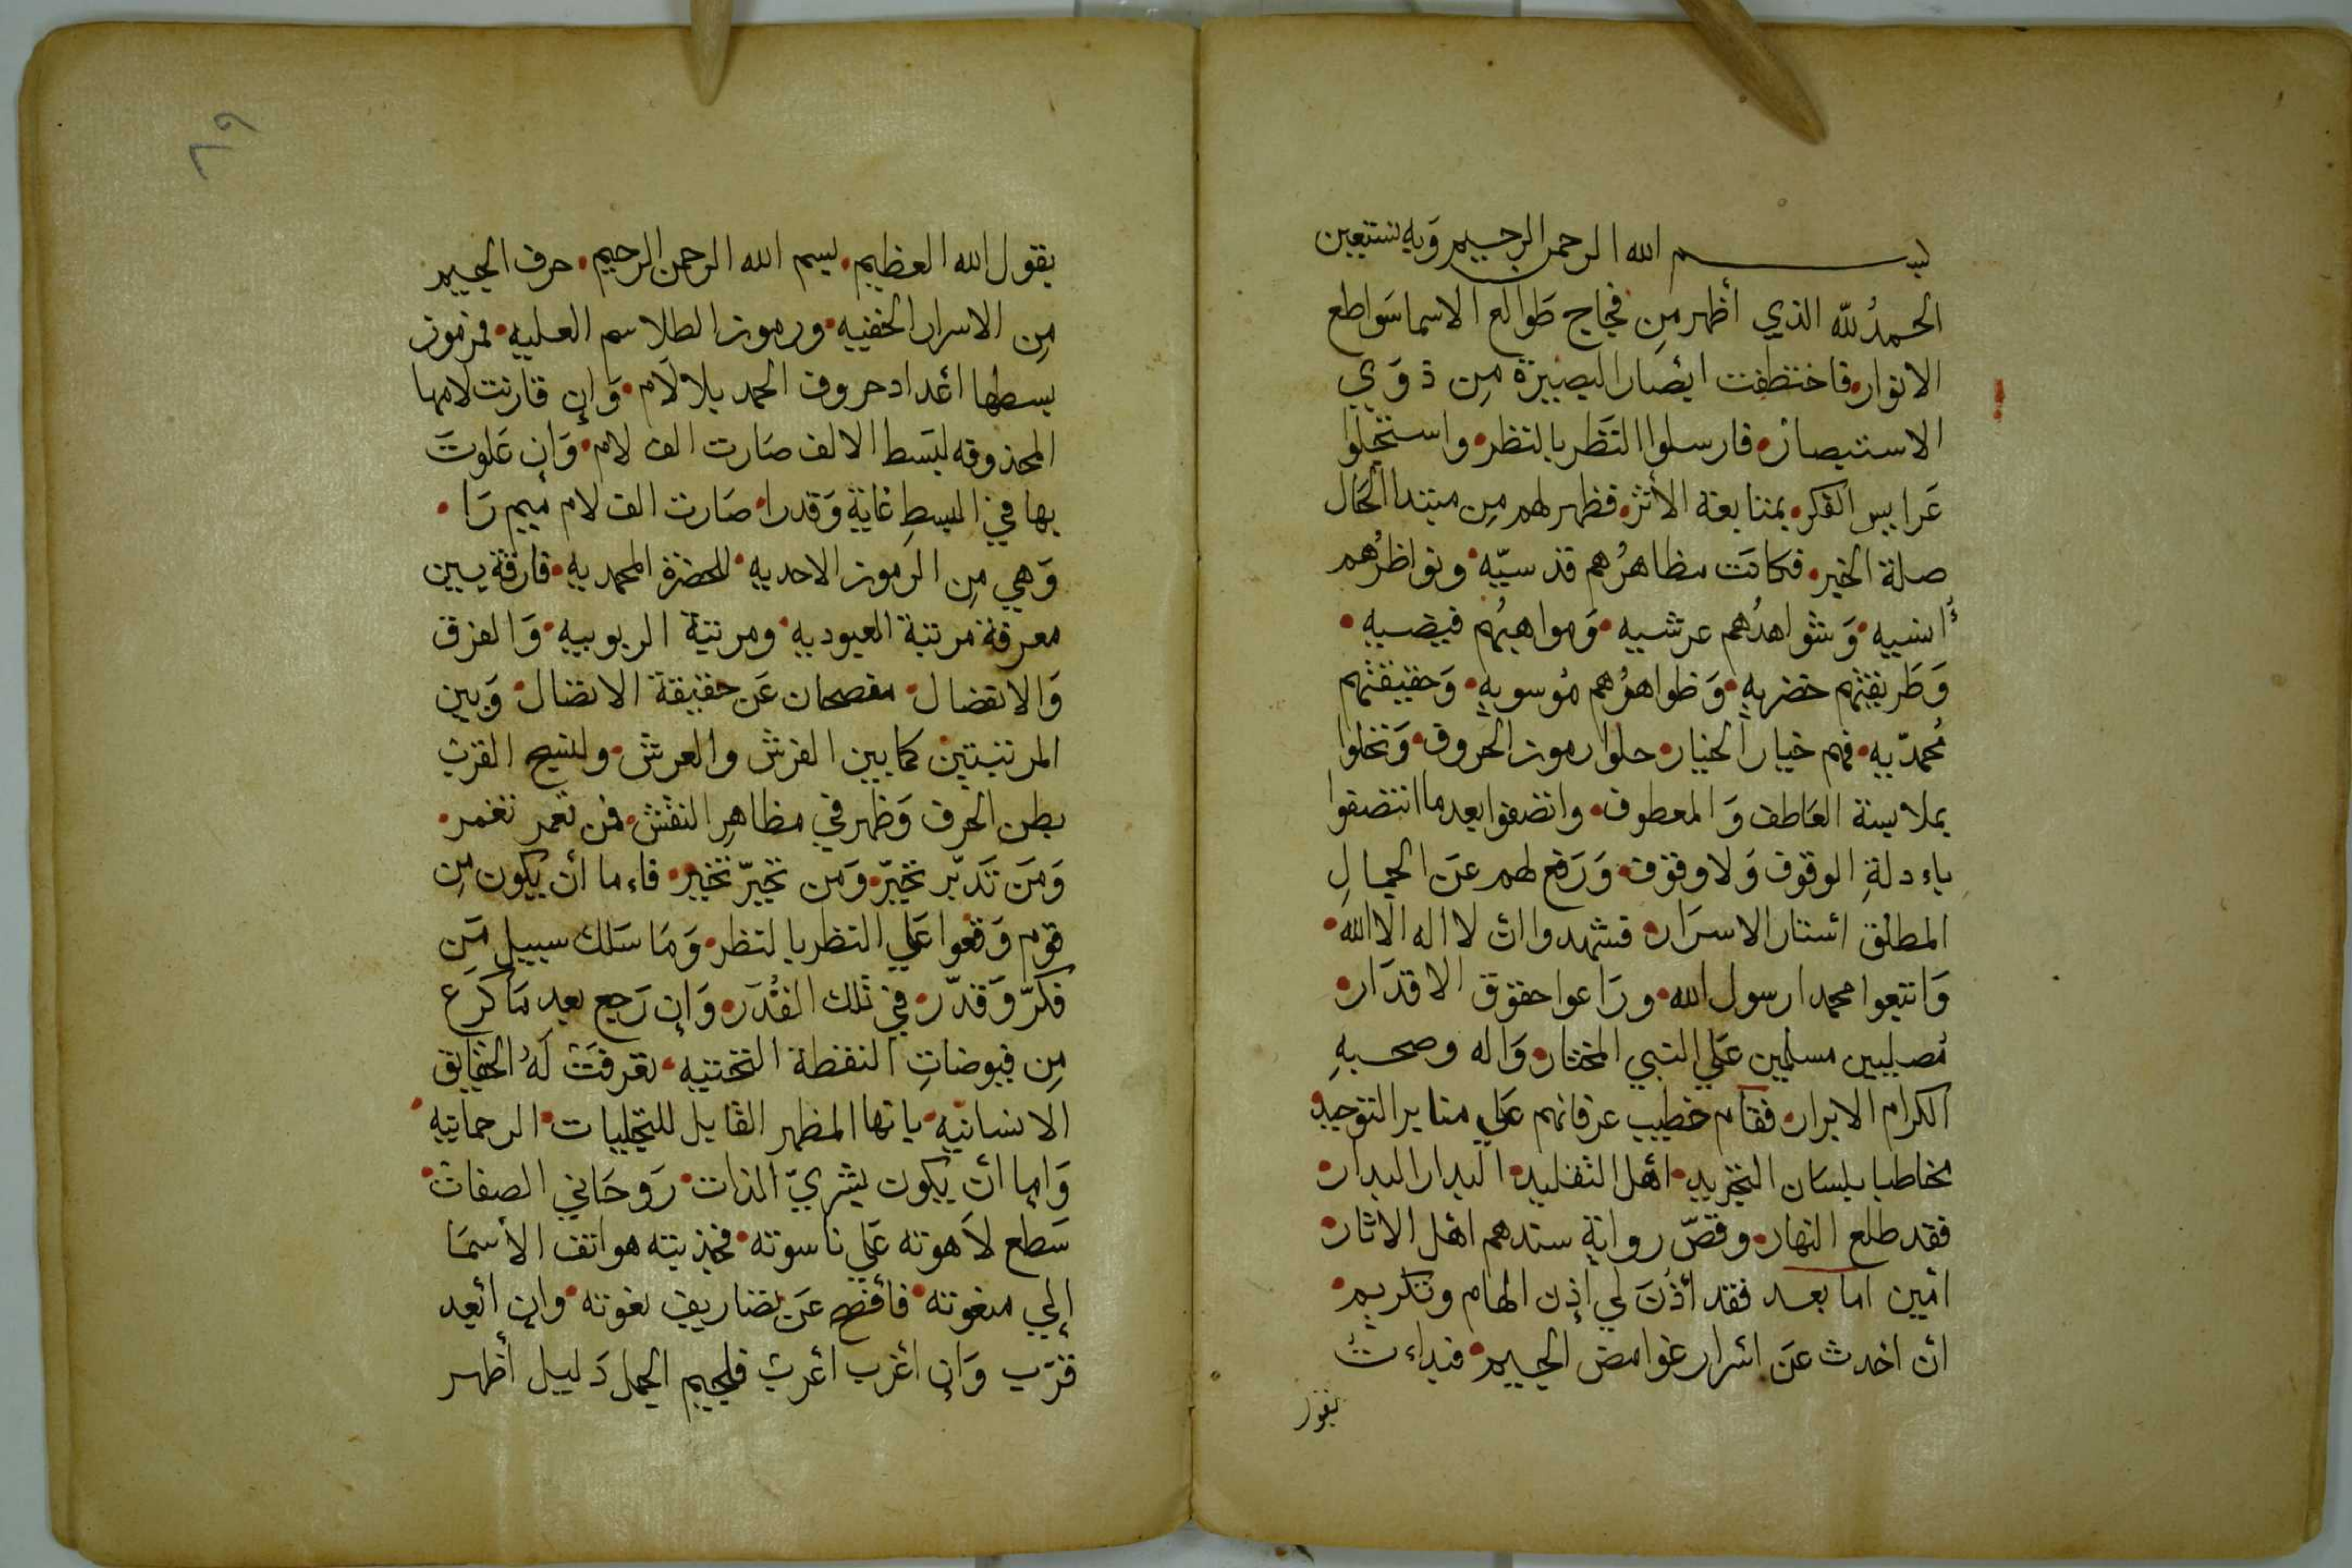 بسم الله الرحمن الرحيم وَبه نستعين
الحمدُ للّه الذي أظهر مِن فجاج طَوالع الاسما سَواطع
الانوار، فاختطفت ابْصار البصيرة مِن ذوَي
الاستبصار، فارسلوا النَظر بالنظر، واستجلوا
عَرايس الفكر، بمتابعة الأثر، فظهر لهم مِن مبتدا الحَال
صلة الخبر، فكانَت مظاهرُهم قدسيّه، ونواظرُهم
أُنسيه، وَشواهدُهم عرشيه، وَمواهبُهم فيضيه،
وَطَريقتهم خضريه، وَظواهرُهم مُوسويه، وَحقيقتهم
مُحمدّيه، فهم خيار الخيار، حلوا رموز الحُروف، وَتحلوا
بملابسة العَاطف وَالمعطوف، واتصفوا بعد ما انتصفوا
باءدلةِ الوقوف وَلا وقوف، وَرَفع لهم عَن الجمالِ
المطلق اسْتار الاسرَار، فشهدوا انْ لا اله الا الله،
وَاتبعوا محمدا رسول الله، ورَاعوا حقوق الاقدَار،
مُصليين مسلمين عَلي النبي المختار، وَاله وصحبهِ
الكرام الابرار، فقام خطيب عرفانهم عَلي منابر التوحيد،
مخاطبا بلسَان التجريد، اهْل التقليد، البدار البدار،
فقد طلع النهار، وقصّ رواية سندهم اهْل الاثار،
امين اما بعد فقد أذْنَ لي إذن الهام وتكريم،
انْ احدث عَن اسْرار غوامض الجيم، فبداءتُ
بقول
٦٩
بقول الله العظيم، بسم الله الرحمن الرحيم، حرف الجيم
مِن الاسرار الخفيه، ورموز الطلاسم العليه، فمرموز
بسطها اعْداد حروف الحمد بلا لَام، وَإن قارنت لامها
المحذوفه لبَسط الالف صَارت الف لام، وَإن عَلوتَ
بها في البسطِ غاية وَقدرا، صَارت الف لام ميم رَا،
وَهي مِن الرموز الاحديه، للحضرة المحمديه، فارقة بين
معرفة مرتبة العبوديه، ومرتبة الربوبيه، وَالفرق
وَالانفصال، مفصحان عَن حقيقة الاتصال، وَبين
المرتبتين كما بين الفرش والعرش، ولنسيج القرب
بطن الحرف وَظهر في مظاهِر النقش، فمن تعمر تغمر،
وَمَن تَدبّر تحيّر، وَمَن تحيّر تخير، فاءما أنْ يكون مِن
قوم وَقعوا عَلي النظر بالنظر، وَمَا سَلك سبيل مَن
فكرّ وَقدّر، في تلك القُدَر، وَإن رَجع بعد مَا كرَع
مِن فيوضاتِ النقطة التحتيه، تعرفَتْ لَهُ الحقايق
الانسانيه، بانها المظهر القابل للتجليات، الرحمانيه،
وَإما انْ يكون بشريّ الذات، رَوحَاني الصفات،
سَطع لاَهوته عَلي ناسوته، فجذبته هواتف الأسمَا
إلي منعوته، فأفصح عَن تصاريف نعوته، وإن ابْعد
قرّب وَإن اغْرب اعْرب فلجيم الجمل دَليل أظهر